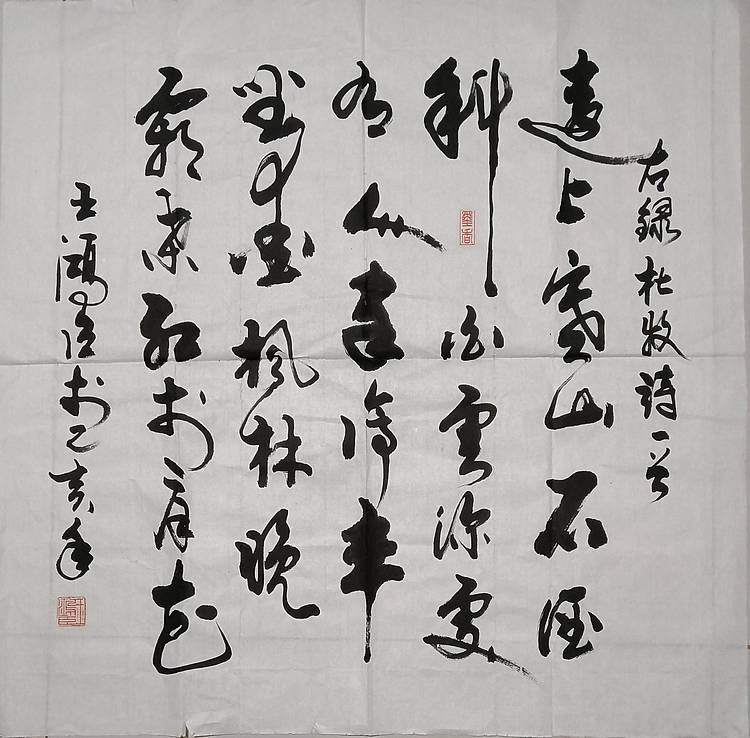 右錄杜牧詩一首
遠上寒山石徑
斜白雲深處
有人家停車
坐愛楓林晚
霜葉紅於二月花
王鴻於己亥年
墨香